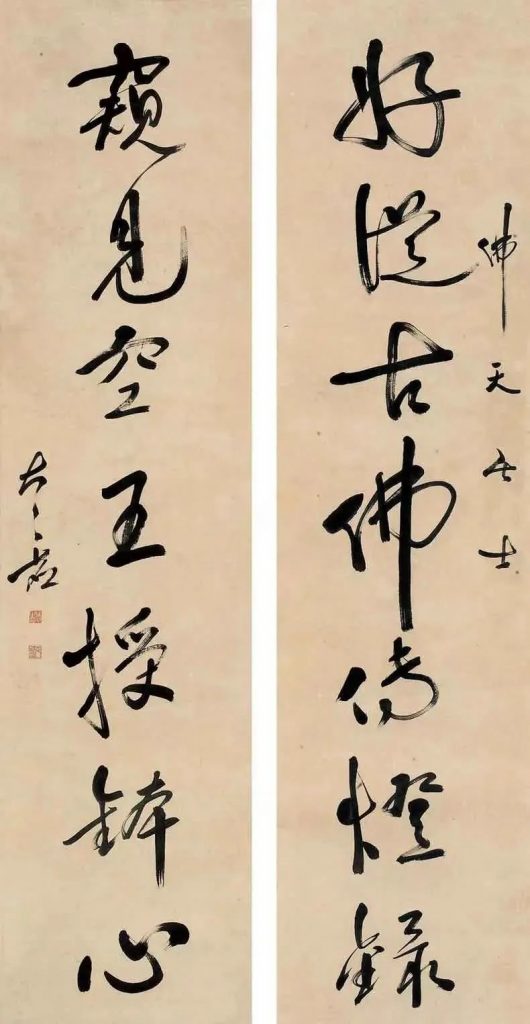 佛天居士
好從古佛傳燈錄
窺見空王授鉢心